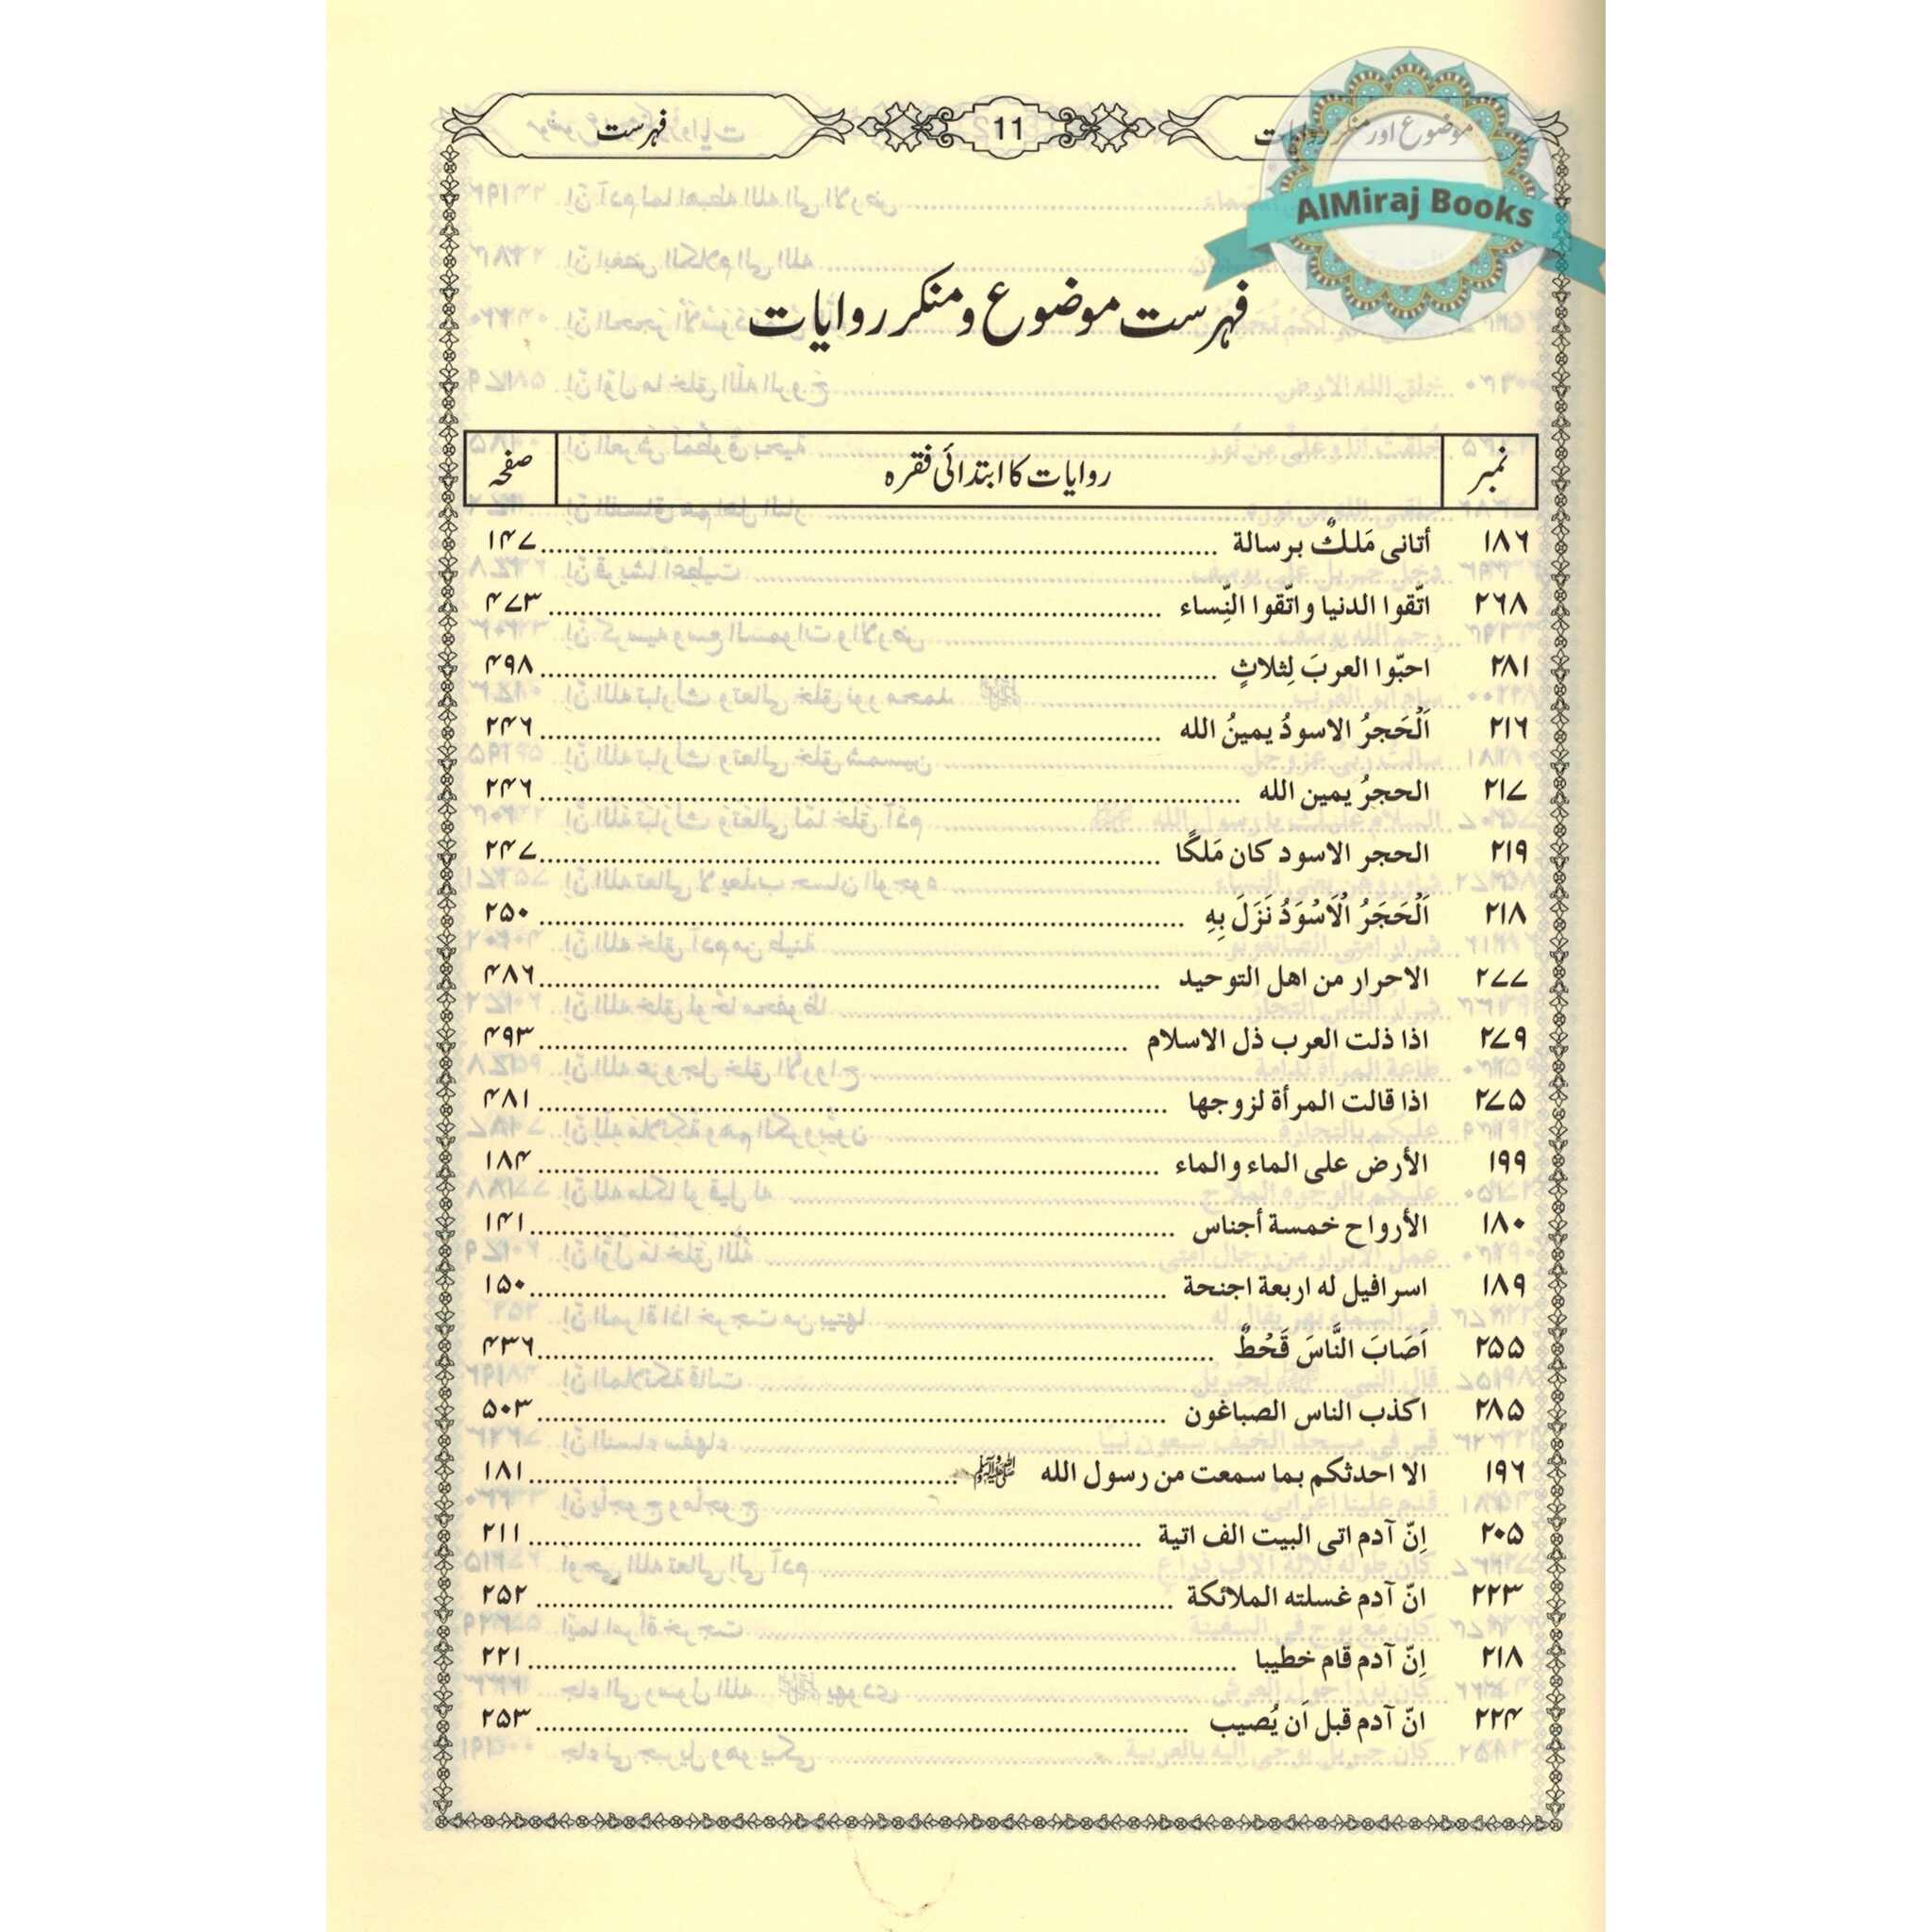 موضوع اور منکر روایات 11 فہرست
AlMiraj Books
فہرست موضوع و منکر روایات
نمبر روایات کا ابتدائی فقرہ صفحہ
۱۸۶ أتانی مَلکٌ برسالة ۱۴۷
۲۶۸ اتّقوا الدنیا واتّقوا النِّساء ۴۷۳
۲۸۱ احبّوا العربَ لِثلاثٍ ۴۹۸
۲۱۶ اَلْحَجرُ الاسودُ یمینُ الله ۲۴۶
۲۱۷ الحجرُ یمین الله ۲۴۶
۲۱۹ الحجر الاسود کان مَلکًا ۲۴۷
۲۱۸ اَلْحَجَرُ الْاَسْوَدُ نَزَلَ بِهِ ۲۵۰
۲۷۷ الاحرار من اهل التوحید ۴۸۶
۲۷۹ اذا ذلت العرب ذل الاسلام ۴۹۳
۲۷۵ اذا قالت المرأة لزوجها ۴۸۱
۱۹۹ الأرض علی الماء والماء ۱۸۴
۱۸۰ الأرواح خمسة أجناس ۱۴۱
۱۸۹ اسرافیل له اربعة اجنحة ۱۵۰
۲۵۵ اَصَابَ النَّاسَ قَحْطٌ ۴۳۶
۲۸۵ اکذب الناس الصباغون ۵۰۳
۱۹۶ الا احدثکم بما سمعت من رسول الله ﷺ ۱۸۱
۲۰۵ اِنّ آدم اتی البیت الف اتیة ۲۱۱
۲۲۳ انّ آدم غسلته الملائکة ۲۵۲
۲۱۸ اِنّ آدم قام خطیبا ۲۲۱
۲۲۴ انّ آدم قبل اَن یُصیب ۲۵۳